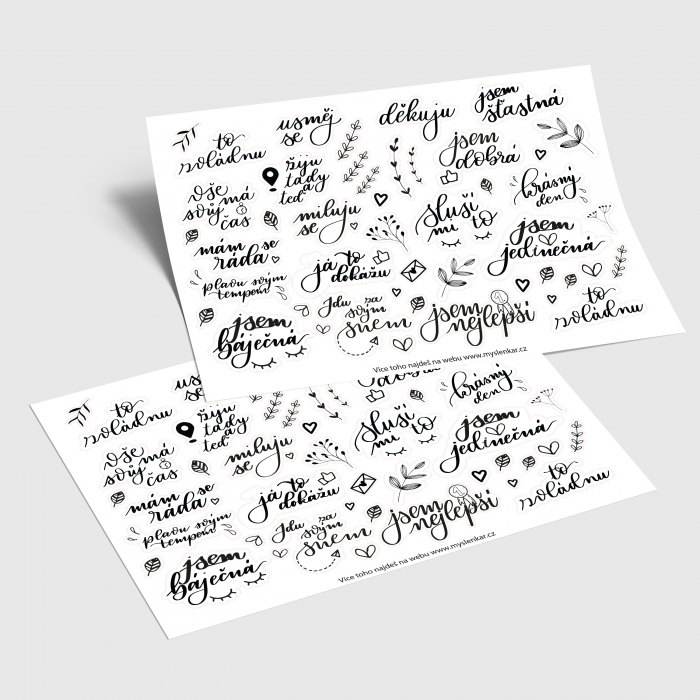 to
zvládnu
usměj
se
děkuju
jsem
šťastná
vše
má
svůj
čas
žiju
tady
a
teď
miluju
se
jsem
dobrá
krásný
den
sluší
mi to
mám se
ráda
plavu svým
tempem
já to
dokážu
jsem
jedinečná
jsem
báječná
Jdu za
svým
snem
jsem
nejlepší
to
zvládnu
Více toho najdeš na webu www.myslenkar.cz
to
zvládnu
žiju
tady
a
teď
krásný
den
vše
má
svůj
čas
miluju
se
sluší
mi to
jsem
jedinečná
mám se
ráda
plavu svým
tempem
já to
dokážu
jsem
báječná
Jdu za
svým
snem
jsem
nejlepší
to
zvládnu
Více toho najdeš na webu www.myslenkar.cz